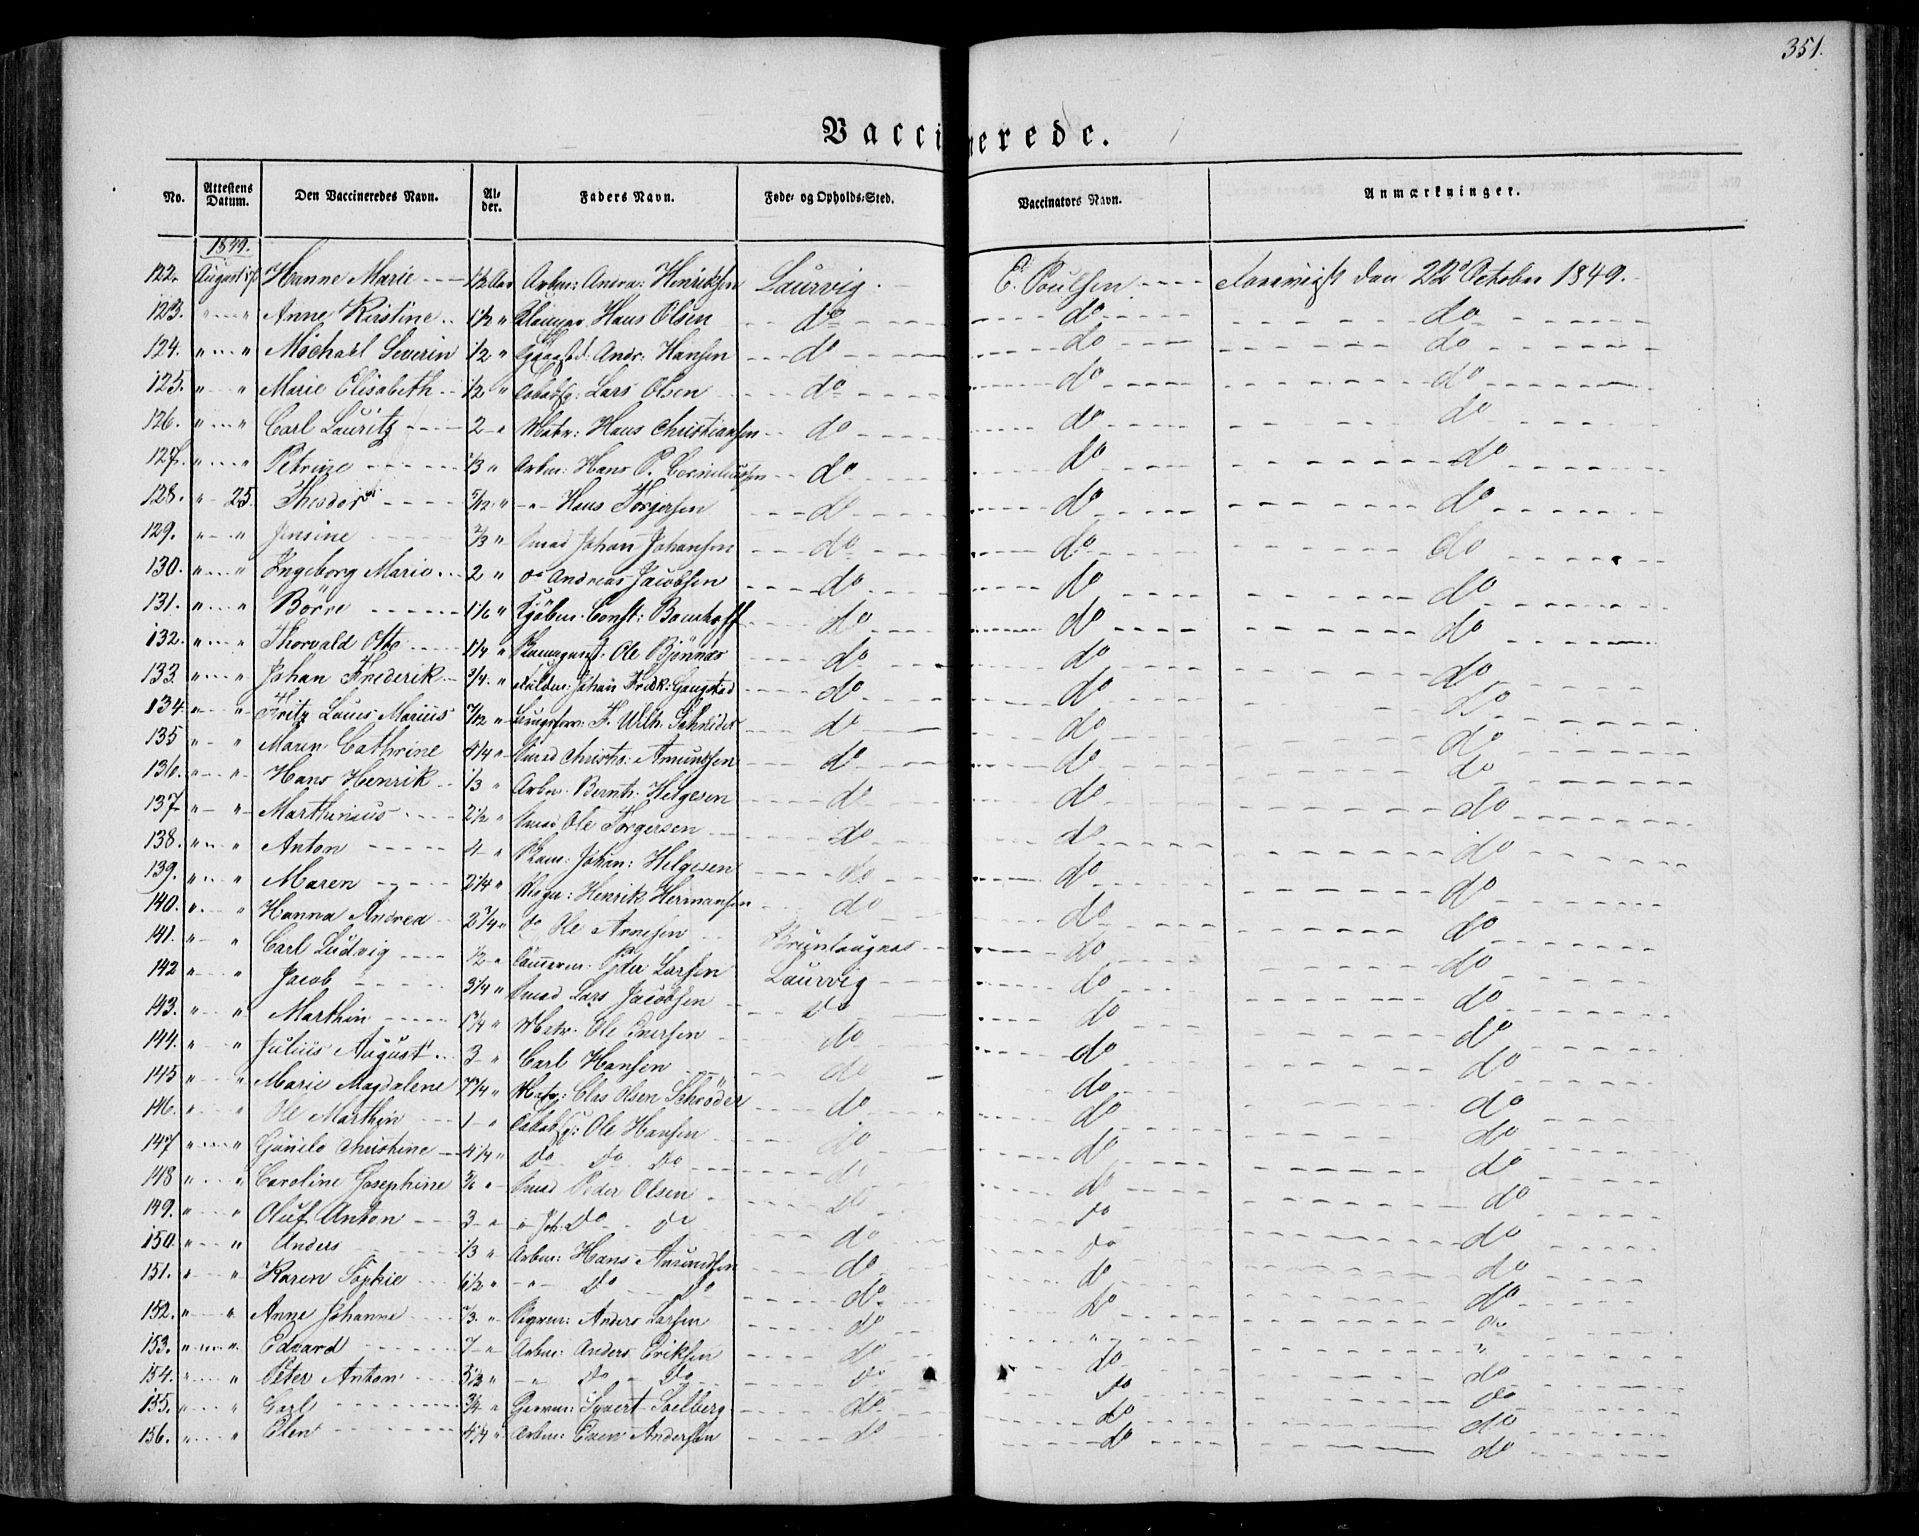 351.
Vaccinerede.
No. Attestens Datum. Den Vaccineredes Navn. Alder. Faders Navn. Føde- og Opholds-Sted. Vaccinators Navn. Anmærkninger.
1849.
122. August Hanne Marie 1½ Aar Arbm: Andrea: Henriksen Laurvig. E. Poulsen den 22d October 1849.
123. " " Anne Kirstine 1½ " Hans Olsen do do do
124. " " Michael Severin 1/2 " Andr: Hansen do do do
125. " " Marie Elisabeth 1/2 " Lars Olsen do do do
126. " " Carl Lauritz 2 " Matr: Hans Christiansen do do do
127. " " Petrine 1/3 " Arbm: Hans P. Corneliussen do do do
128. " 25. Theodor 5/12 " " Hans Torgersen do do do
129. " " Jensine 2/3 " Johan Johansen do do do
130. " " Ingeborg Marie 2 " do Andreas Jacobsen do do do
131. " " Börre 1 1/6 " Kjöbm. Const: Bomhoff do do do
132. " " Thorvald Otto 1 1/4 " Ole Bjönnes do do do
133 " " Johan Frederik 3/4 " Johan Fredk: Gaugstad do do do
134 " " Fritz Louis Marius 7/12 " F. Wilh. Schneider do do do
135 " " Maren Cathrine 4 1/4 " Christo: Amundsen do do do
136. " " Hans Henrik 1/3 " Arbm. Bernt Helgesen do do do
137 " " Marthinius 2 1/2 " Ole Torgersen do do do
138. " " Anton 4 " Johan: Helgesen do do do
139. " " Maren 2 1/4 " Henrik Hermansen do do do
140. " " Hanna Andrea 2 3/4 " do Ole Arnesen do do
141. " " Carl Ludvig 1/2 " Peder Larsen Brunlaugnæs do do
142 " " Jacob 3 1/4 " Lars Jacobsen Laurvig do do
143. " " Marthin 1 3/4 " Matr. Ole Iversen do do do
144. " " Julius August 3 " Carl Hansen do do do
145 " " Marie Magdalene 7 3/4 " Matr: Clas Olsen Schröder do do do
146. " " Ole Marthin 1 " Ole Hansen do do do
147 " " Gunild Christine 4 1/4 " do do do do do do
148 " " Caroline Josephine 5/6 " Peder Olsen do do do
149. " " Oluf Anton 3 " " do do do do do
150. " " Anders 1/3 " Arbm: Hans Amundsen do do do
151. " " Karen Sophie 6 1/2 " " do do do do do
152. " " Anne Johanne 2/3 " Anders Larsen do do do
153. " " Edvard 7 " Arbm: Anders Eriksen do " "
154. " " Peter Anton 3 1/2 " " do do do do do
155. " " Carl 3/4 " Syvert Solberg do do do
156. " " Elen 4 1/4 " Arbm: Even Andersen do do do